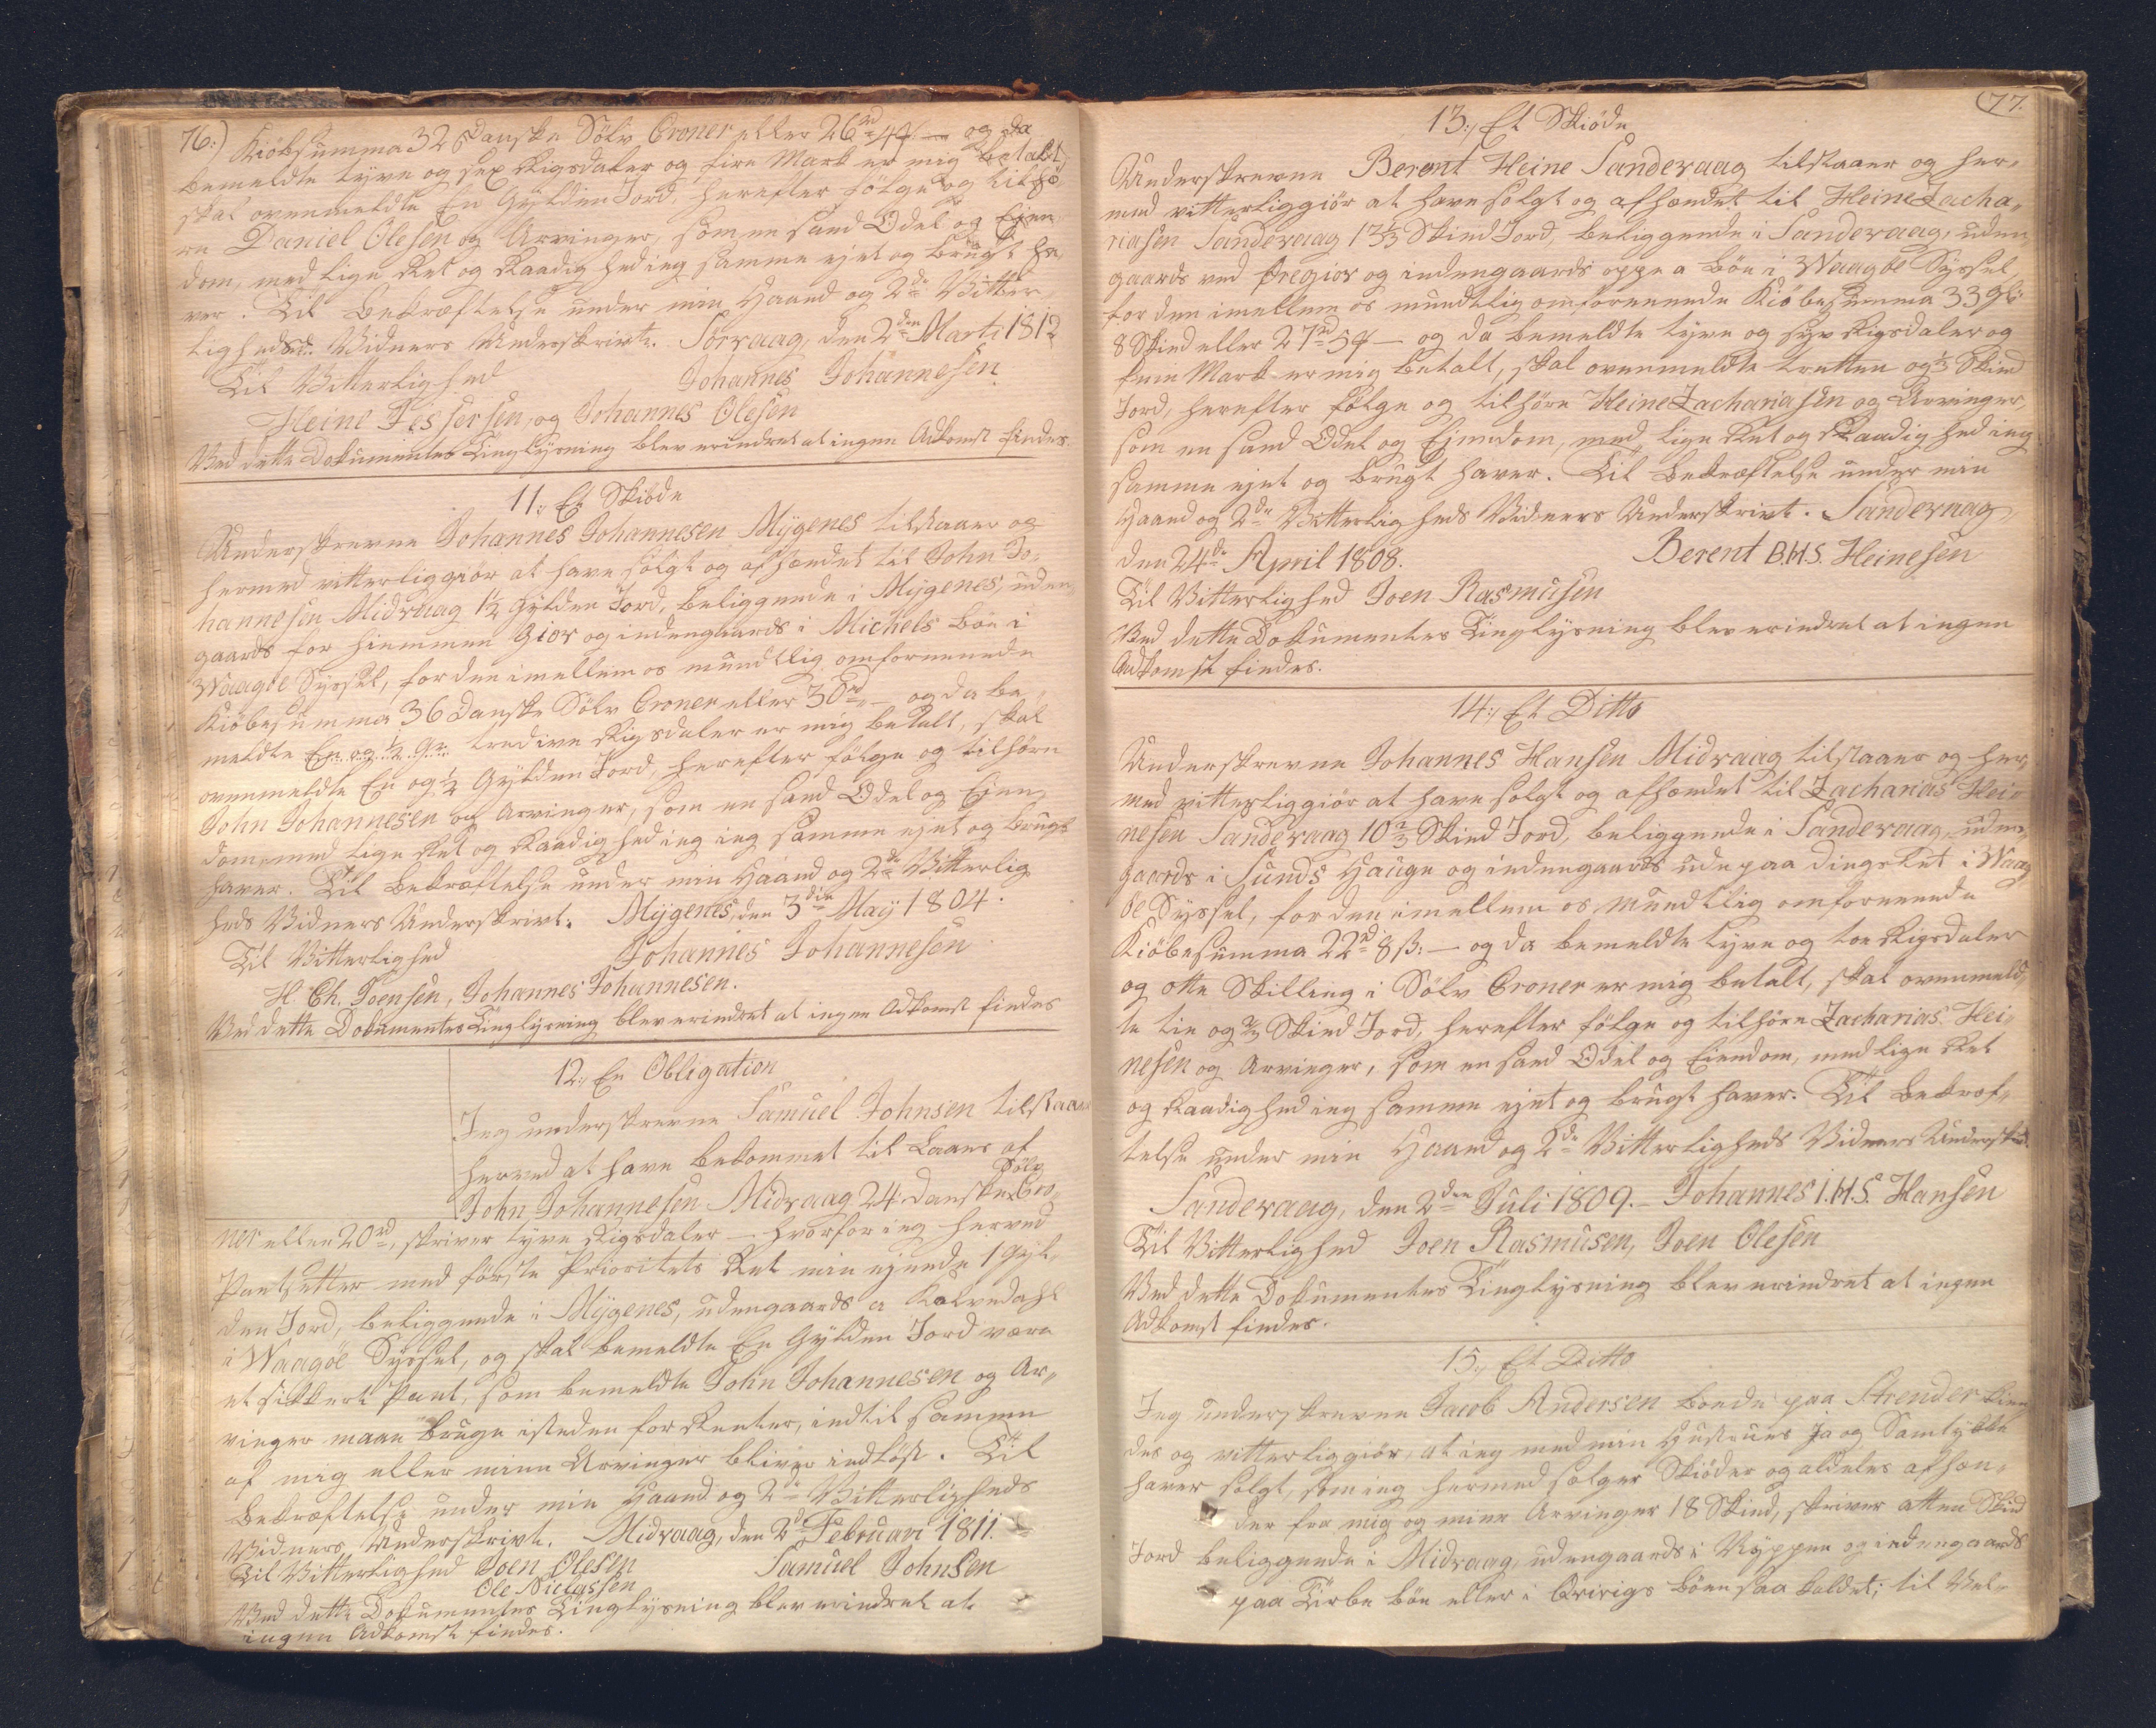 76.) Kiöbsumma 32 Danske Sölv Croner eller 26 rd 4 – og da
bemeldte tyve og sex Rigsdaler og fire Mark er mig betalt,
skal ovenmeldte En Gylden Jord, herefter fölge og tilhö„
re Daniel Olesen og Arvinger, som en sand Odel og Eien„
dom, med lige Ret og Raadighed ieg samme ejet og brugt ha„
ver. Til Bekræftelse under min Haand og 2de Vitter„
ligheds Vidners Underskrivt. Sörvaag, den 2den Marti 1812
Til Vitterlighed Johannes Johannesen
Heine Jessersen, og Johannes Olesen
Ved dette Dokumentes Tinglysning blev erindret at ingen Adkomst findes.
11., Et Skiöde
Underskrevne Johannes Johannesen Mÿgenes tilstaaer og
hermed vitterliggiör at have solgt og afhændet til John Jo„
hannesen Midvaag 1½ Gylden Jord, beliggende i Mÿgenes, uden„
gaards for hiemmen Gior og indengaards i Michels böe i
Waagöe Syssel, for den imellem os mundtlig omforenede
Kiöbesumma 36 Danske Sölv Croner eller 30 rd – og da be„
meldte En og ½ G tredive Rigsdaler er mig betalt, skal
ovenmeldte En og ½ Gylden Jord, herefter fölge og tilhöre
John Johannesen og Arvinger, som en sand Odel og Eien„
dom, med lige Ret og Raadighed ieg ieg samme ejet og brugt
haver. Til Bekræftelse under min Haand og 2de Vitterlig
heds Vidners Underskrivt. Mÿgenes, den 3die Maÿ 1804.
Til Vitterlighed Johannes Johannesen
H. Ch. Joensen, Johannes Johannesen.
Ved dette Dokumentes Tinglysning blev erindret at ingen Adkomst findes
12., En Obligation
Jeg underskrevne Samuel Johnsen tilstaaer
herved at have bekommet til Laans af
John Johannesen Midvaag 24 Danske Sölv Cro„
ner eller 20 rd, skriver tyve Rigsdaler – hvorfor ieg herved
Pantsetter med förste Prioritets Ret min ejende 1 Gyl„
den Jord, beliggende i Mÿgenes, udengaards a Kalvedahl
i Waagöe Syssel, og skal bemeldte En Gylden Jord være
et sikkert Pant, som bemeldte John Johannesen og Ar„
vinger maae bruge isteden for Renter, indtil samme
af mig eller mine Arvinger bliver indlöst. Til
Bekræftelse under min Haand og 2de Vitterligheds
Vidners Underskrivt. Midvaag, den 2d Februari 1811.
Til Vitterlighed Joen Olesen Samuel Johnsen
Ole Niclassen
Ved dette Dokumentes Tinglysning blev erindret at
ingen Adkomst findes.
(77.
13., Et Skiöde
Underskrevne Berent Heine Sandevaag tilstaaer og her„
med vitterliggiör at have solgt og afhændet til Heine Zacha„
riasen Sandevaag 13⅓ Skind Jord, beliggende i Sandevaag, uden
gaards ved Öregior og indengaards oppe a Böe i Waagöe Syssel,
for den imellem os mundtlig omforenende Kiöbesumma 33 Gl:
8 Skind eller 27 rd 5 – og da bemeldte tyve og syv Rigsdaler og
fem Mark er mig betalt, skal ovenmeldte tretten og ⅓ Skind
Jord, herefter fölge og tilhöre Heine Zachariasen og Arvinger,
som en sand Odel og Eiendom, med lige Ret og Raadighed ieg
samme ejet og brugt haver. Til Bekræftelse under min
Haand og 2de Vitterligheds Vidners Underskrivt. Sandevaag,
den 24de April 1808. Berent B.H.S. Heinesen
Til Vitterlighed Joen Rasmusen
Ved dette Dokumentes Tinglysning blev erindret at ingen
Adkomst findes.
14., Et Ditto
Underskrevne Johannes Hansen Midvaag tilstaaer og her„
med vitterliggiör at have solgt og afhændet til Zacharias Hei„
nesen Sandevaag 10⅔ Skind Jord, beliggende i Sandevaag, uden„
gaards i Sunds Hauge og indengaards ude paa i Waag„
öe Syssel, for den imellem os mundtlig omforenende
Kiöbesumma 22 rd 8 ß: – og da bemeldte tyve og toe Rigsdaler
og otte Skilling i Sölv Croner er mig betalt, skal ovenmeld„
te tie og ⅔ Skind Jord, herefter fölge og tilhöre Zacharias Hei„
nesen og Arvinger, som en sand Odel og Eiendom, med lige Ret
og Raadighed ieg samme ejet og brugt haver. Til Bekræf„
telse under min Haand og 2de Vitterligheds Vidners Underskt.
Sandevaag, den 2den Juli 1809. – Johannes I.H.S. Hansen
Til Vitterlighed Joen Rasmusen, Joen Olesen
Ved dette Dokumentes Tinglysning blev erindret at ingen
Adkomst findes.
15., Et Ditto
Jeg underskrevne Jacob Andersen bonde paa Strender kien„
des og vitterliggiör, at ieg med min Hustrues Ja og Samtykke
haver solgt, som ieg hermed sælger Skiöder og aldeles afhæn„
der fra mig og mine Arvinger 18 Skind, skriver atten Skind
Jord beliggende i Midvaag, udengaards i Ryppen og indengaards
paa Tirbe böe eller i Qvirigs böen saa kaldet; til Vel„